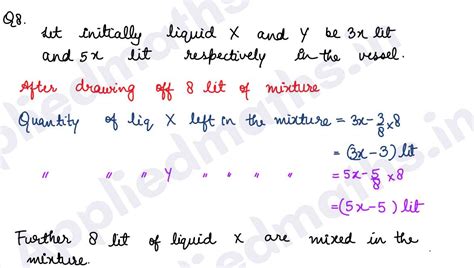 Q8.
Let initially liquid X and Y be 3x lit
and 5x lit respectively in the vessel.
After drawing off 8 lit of mixture
Quantity of liq X left in the mixture = 3x-3/8×8
= (3x-3) lit
" " " Y " " " " = 5x-5/8×8
=(5x-5) lit
Further 8 lit of liquid X are mixed in the
mixture.
appliedmaths.in